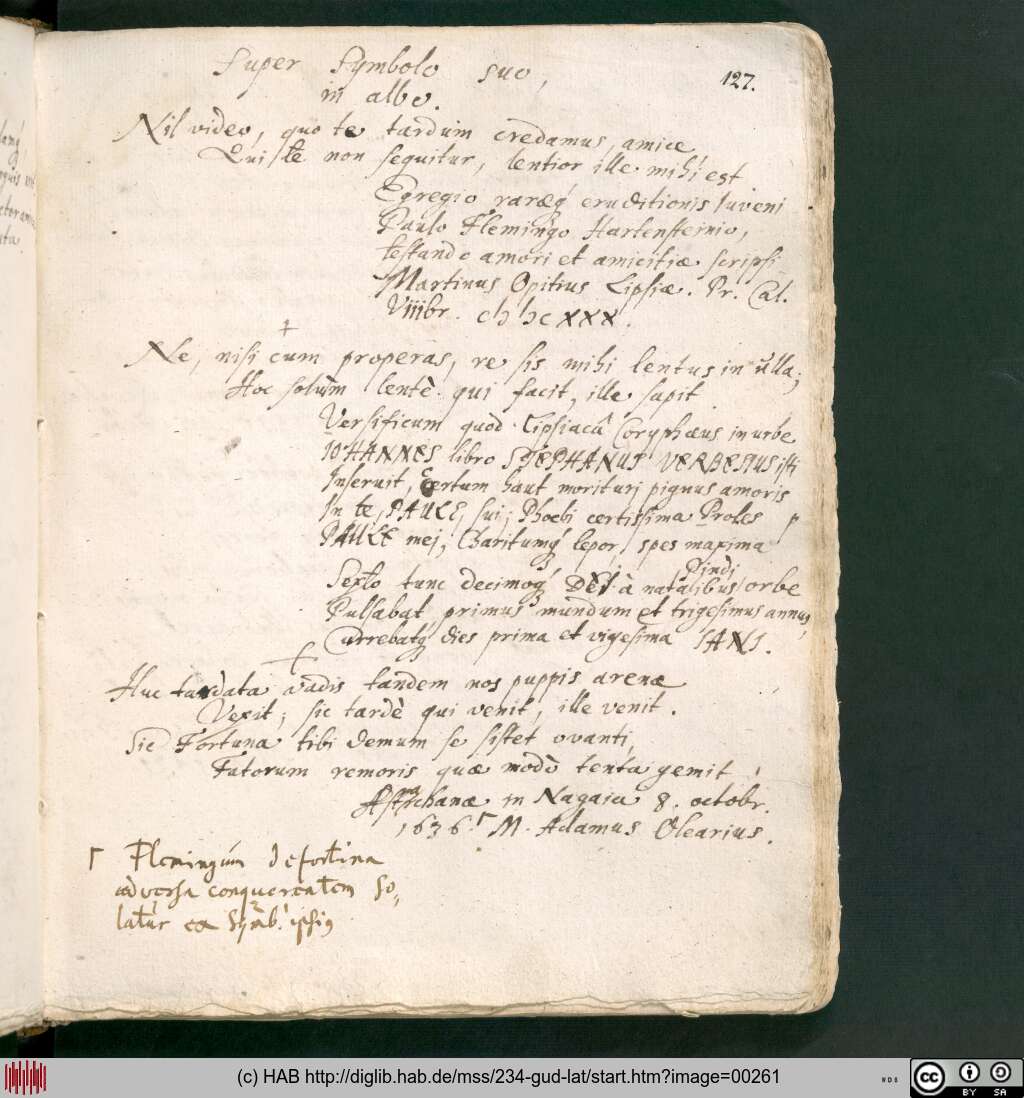 Super Symbolo suo,
in albo.
127.
Nil video, quo te tardum credamus, amice
Qui te non sequitur, lentior ille mihi est
Egregio raræq́ eruditionis Iuveni
Paulo Flemingo Hartensteinio,
testando amori et amicitiæ scripsi
Martinus Opitius Lipsiæ. Pr. Cal.
VIIIbr. XXX.
+
Ne, nisi cum properas, re sis mihi lentus in ulla;
Hoc solùm lentè qui facit, ille sapit.
Versificum quod Lipsiacâ Coryphæus in urbe
IOHANNES libro STEPHANUS VERBESIUS isti
Inseruit, Certum haut morituri pignus amoris
In te, PAULE, sui; Phoebi certissima Proles
PAULE mei, Charitumq́ lepor, spes maxima
Pindi
Sexto tunc decimoq́ DEI à natalibus orbe
Pulsabat primus mundum et trigesimus annus,
Currebatq́ dies prima et vigesima IANI.
+
Huc tardata vadis tandem nos puppis arenæ
Vexit; sic tardè qui venit, ille venit.
Sic Fortuna tibi demum se sistet ovanti,
Fatorum remoris quæ modò tenta gemit.
Astrachanæ in Nagaia 8. octobr.
1636. M. Adamus Olearius.
Flemingum de fortuna
adversa conquerentem so,,
latur ex Symb. ipsius
(c) HAB http://diglib.hab.de/mss/234-gud-lat/start.htm?image=00261
WDB
cc
BY SA